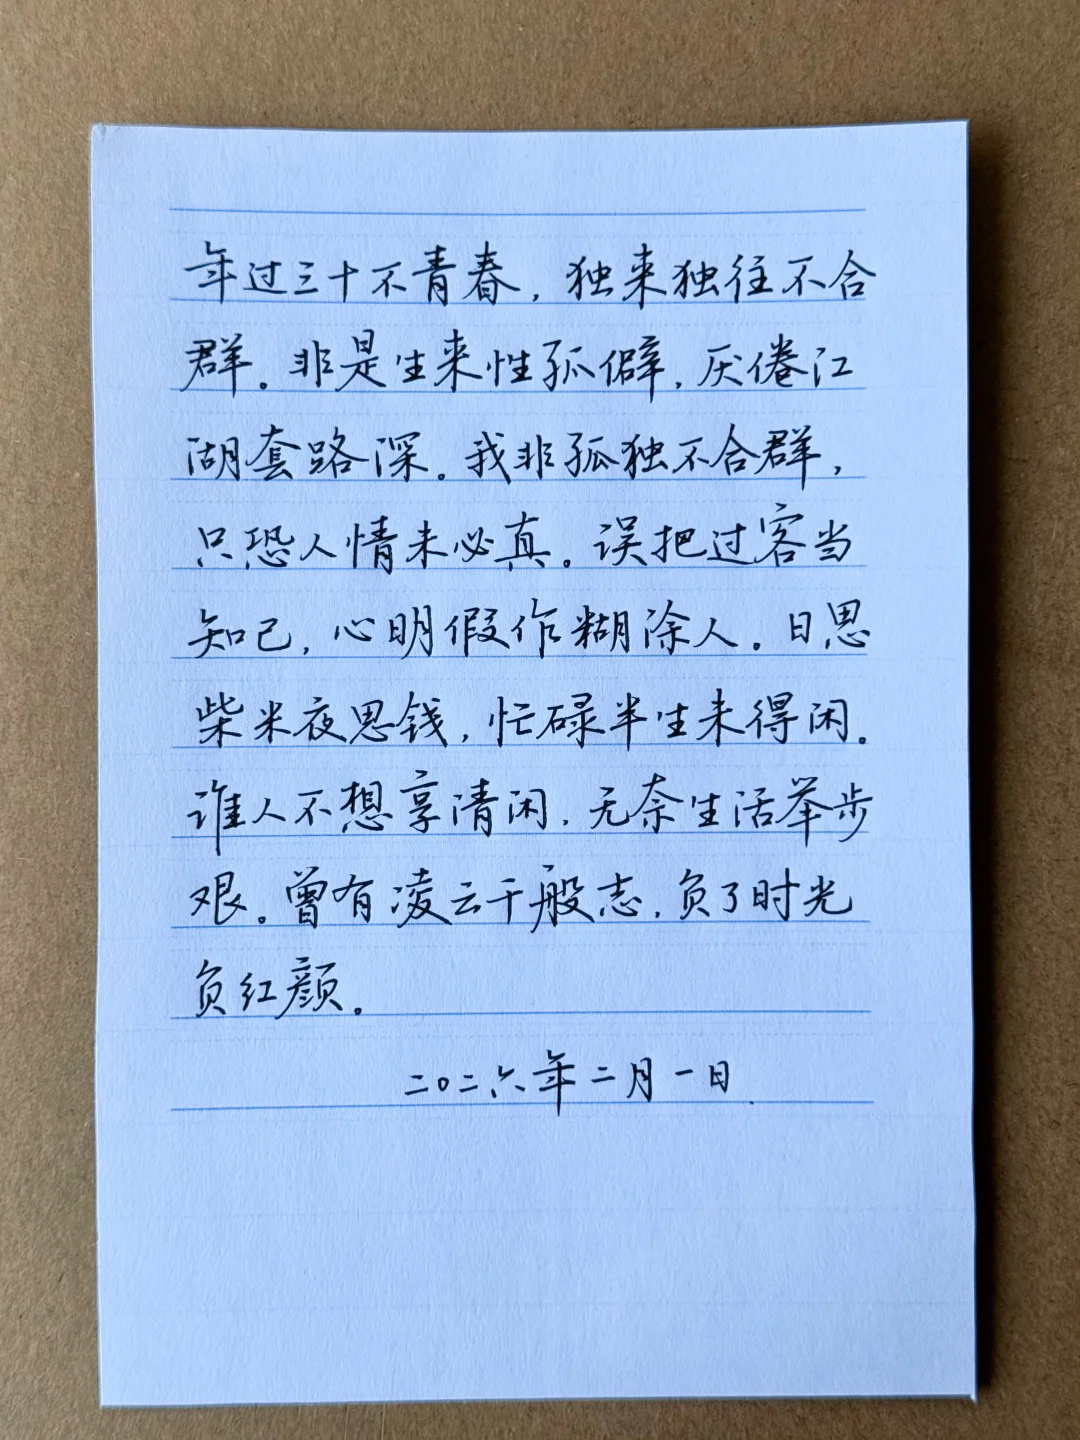 年过三十不青春，独来独往不合
群。非是生来性孤僻，厌倦江
湖套路深。我非孤独不合群，
只恐人情未必真。误把过客当
知己，心明假作糊涂人。日思
柴米夜思钱，忙碌半生未得闲。
谁人不想享清闲，无奈生活举步
艰。曾有凌云千般志，负了时光
负红颜。
二〇二六年二月一日